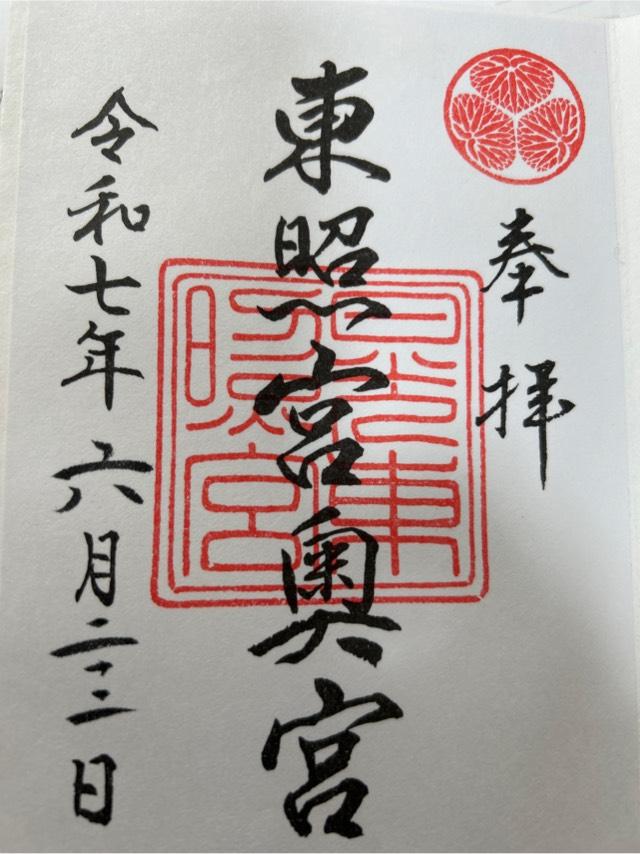 奉拝
東照宮奥宮
日光東
照宮
令和七年六月二三日